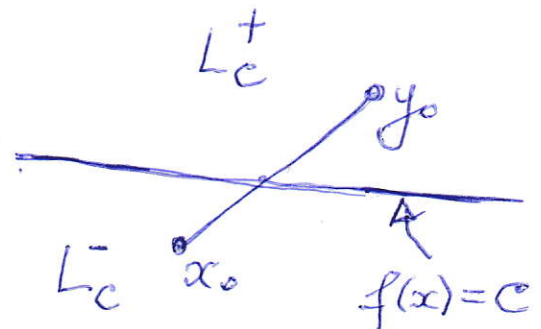 L_c^+
y_0
L_c^-
x_0
f(x) = c